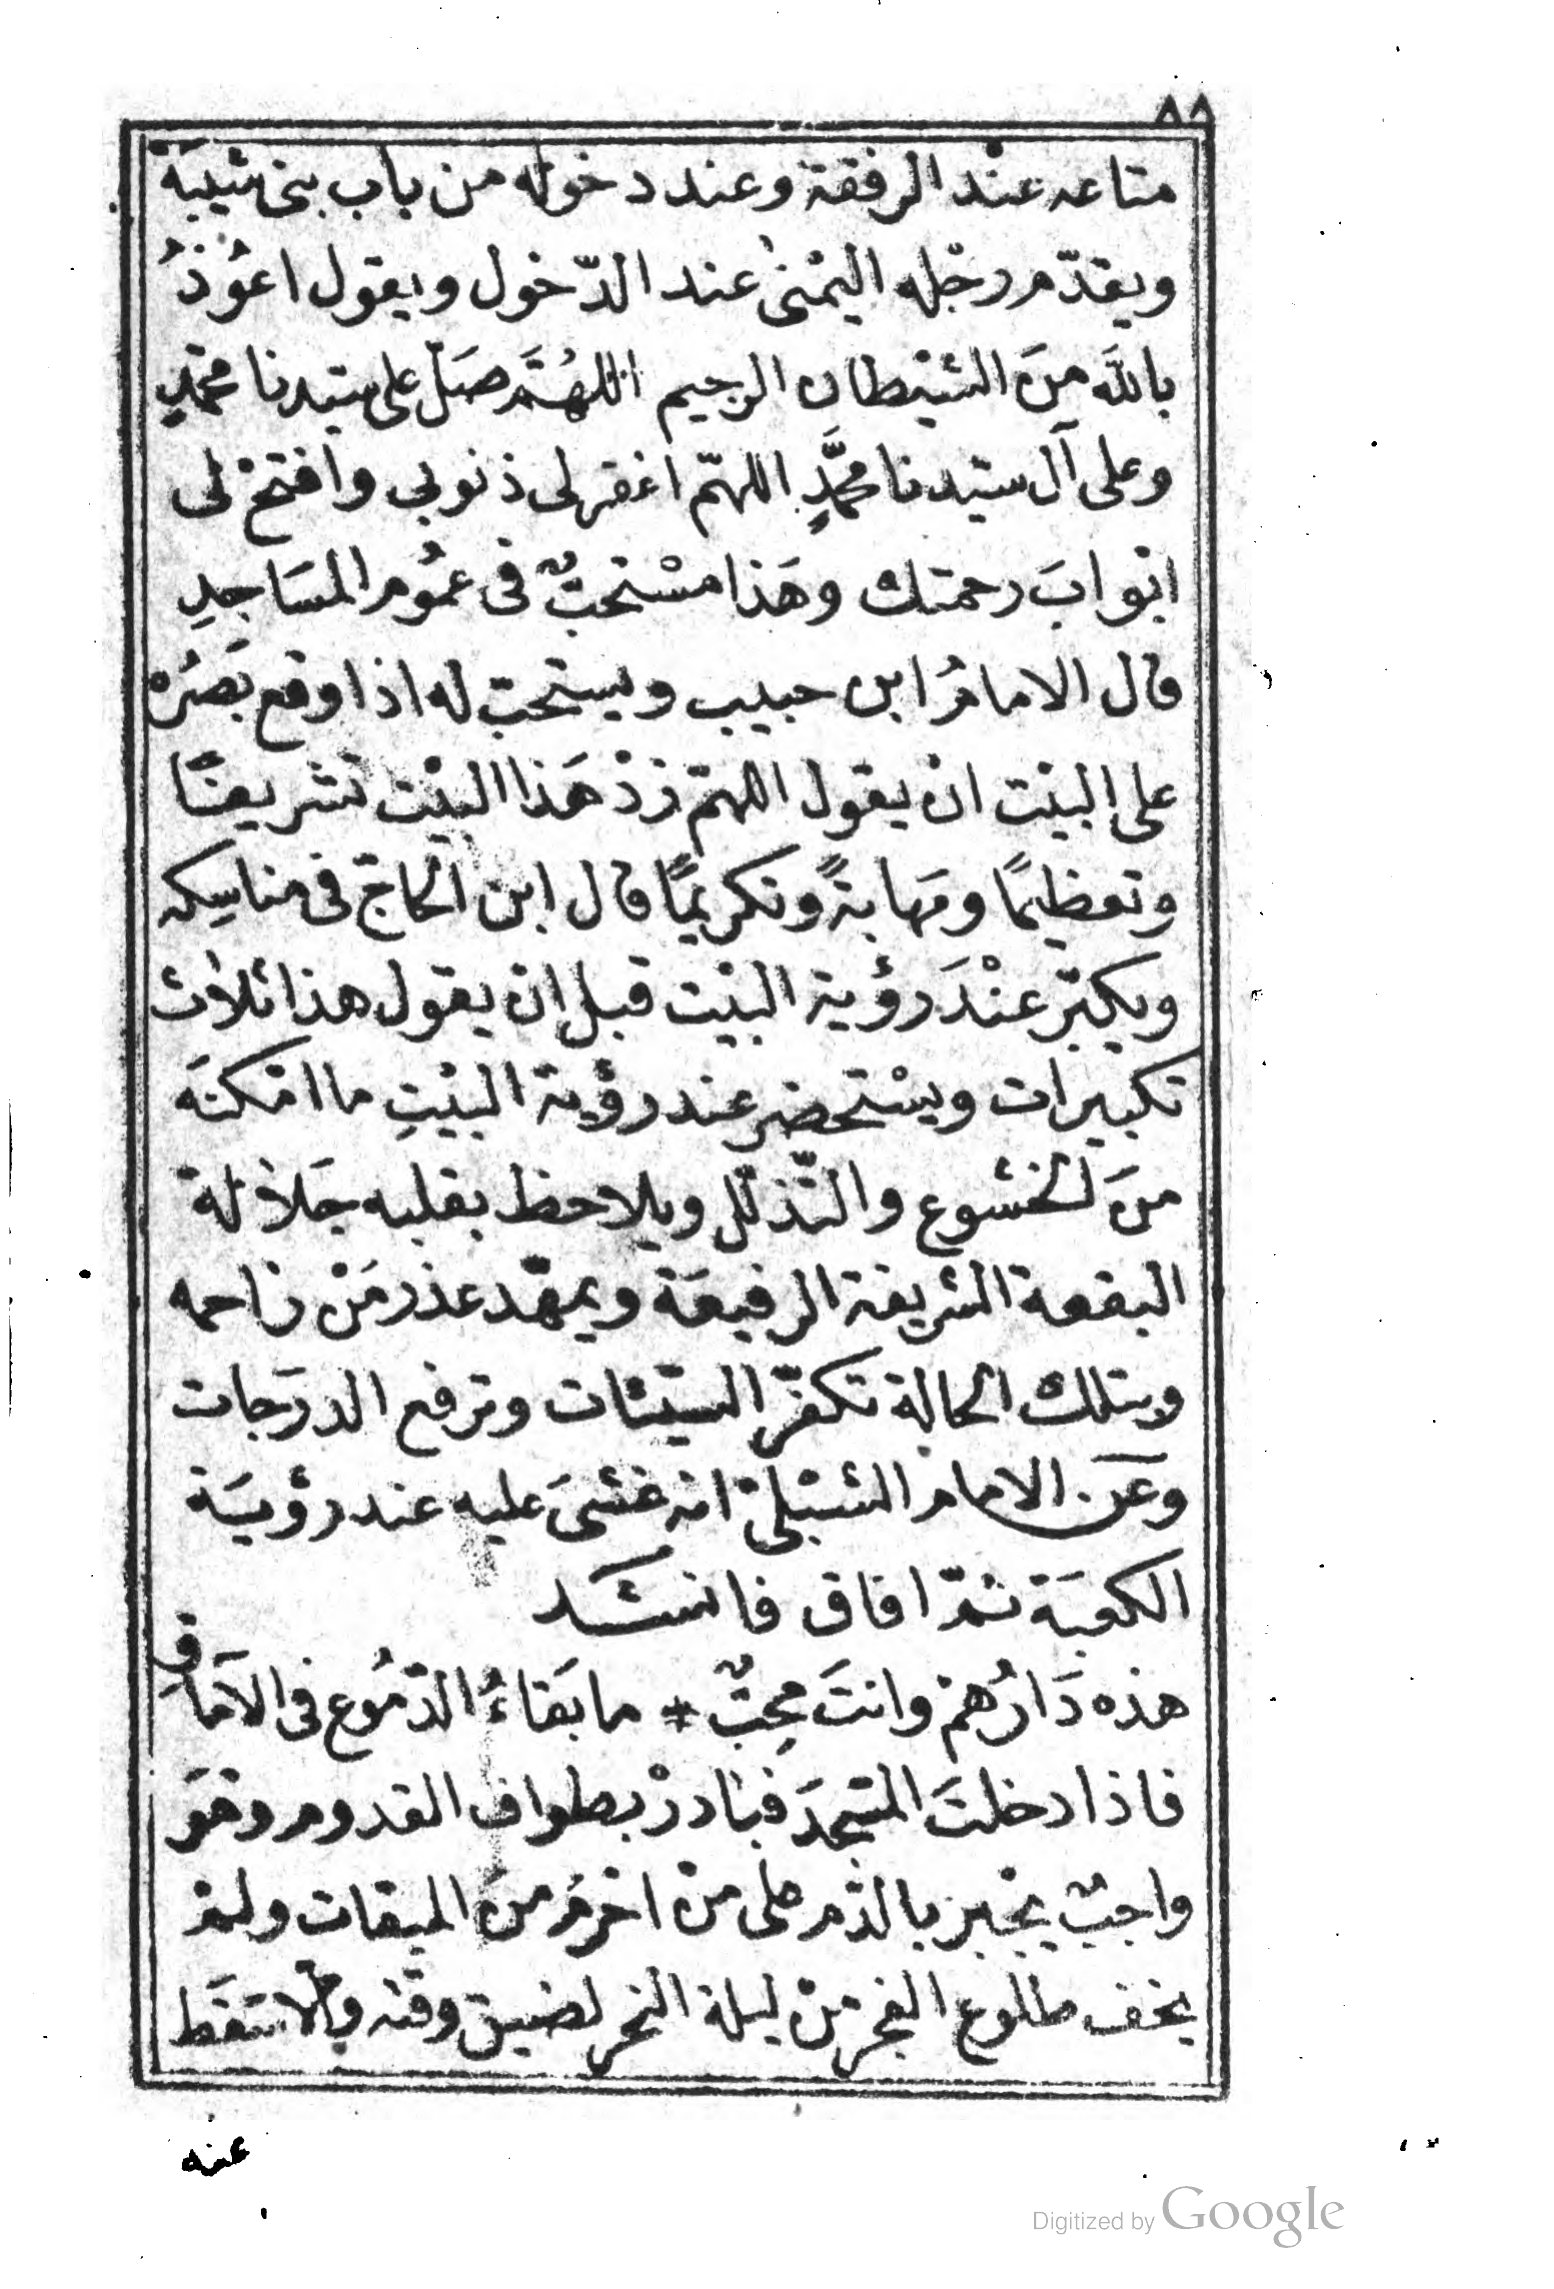 ٨٨
متاعه عنْد الرفقة وعند دخوله من باب بنى شيبَة
ويقدّم رجْله اليمْنىٰ عند الدّخول ويقول اعُوذُ
بالله منَ الشيْطان الرجيم اللهُمَّ صَلّ على سيّدنا محمّدٍ
وعلى آل سيّدنا محمَّدٍ اللهمّ اغفرلى ذنوبي وافتحْ لى
ابْوابَ رحمتك وهَذا مسْتحبٌّ فى عمُوم المسَاجدِ
قال الامامُ ابن حبيب ويستحبّ له اذا وقع بَصَرُهْ
على البيْت انْ يقول اللهمّ زدْ هَذا البيْت تشريفًا
وتعظيمًا ومَهابةً وتكريمًا قال ابن الحاجّ فى مناسِكه
ويكبّر عنْدَ رؤية البيْت قبل ان يقول هذا ثلاث
تكبيرات ويسْتحضر عند رؤية البيْتِ ما امْكنَه
منَ الخشوع والتّذلّل ويلاحظ بقلبه جَلالة
البقعة الشريفة الرفيعَة ويمهّد عذر مَنْ زاحمه
وبتلك الحالة تكفّر السيّئات وترفع الدرَجات
وعَن الامام الشبْليّ انه غشىَ عليه عند رؤيَة
الكعبَة ثمّ افاق فانشد
هذه دَارُهمْ وانتَ محِبٌّ * ما بَقاءُ الدّمُوع فى الآمَاقِ
فاذا دخلتَ المسْجدَ فبَادرْ بطواف القدوم وهَوَ
واجبٌ ينْجبر بالدّم على منْ احْرمَ منَ الميقات ولمْ
يخف طلوع الفجر منْ ليلة النحر لضيق وقته والّا سَقَط
عنه
Digitized by Google